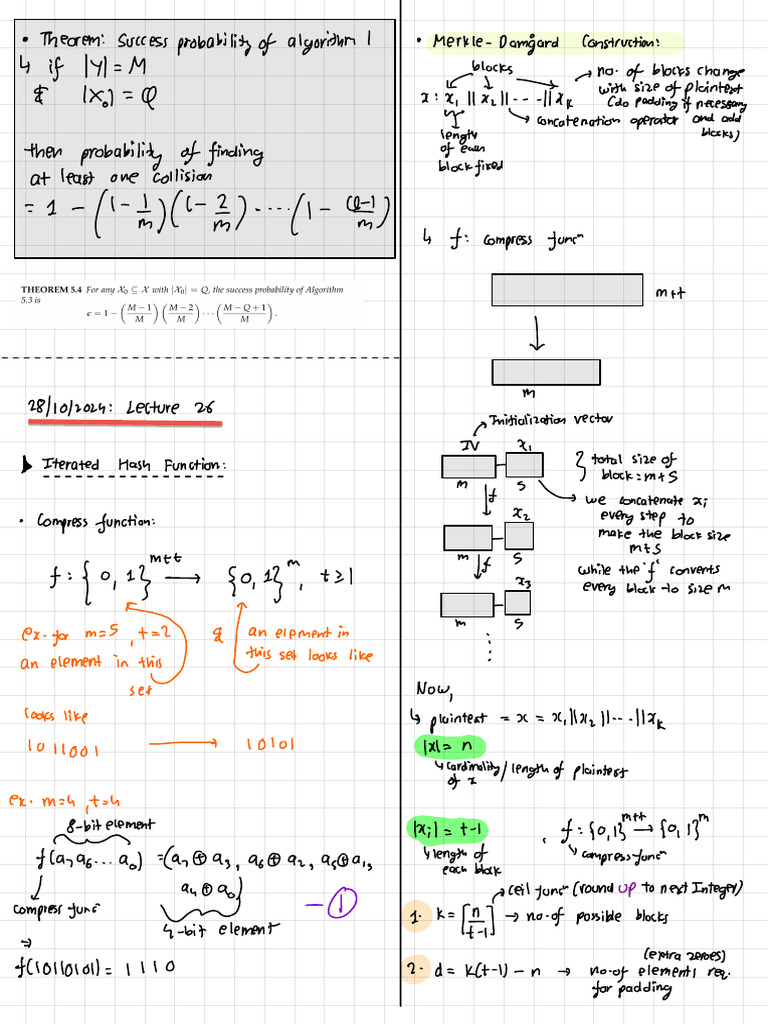 • Theorem: Success probability of algorithm 1
↳ if |Y| = M
& |X₀| = Q
then probability of finding
at least one collision
= 1 - (1 - 1/m)(1 - 2/m) ---- (1 - (Q-1)/m)
THEOREM 5.4 For any X₀ ⊆ X with |X₀| = Q, the success probability of Algorithm
5.3 is
ϵ = 1 − ((M − 1)/M) ((M − 2)/M) ··· ((M − Q + 1)/M) .
28/10/2024: Lecture 26
Iterated Hash Function:
• Compress function:
f : {0, 1}^{m+t} ⟶ {0, 1}^m, t ≥ 1
ex. for m=5, t=2 & an element in
an element in this this set looks like
set
looks like
1011001 ⟶ 10101
ex. m=4, t=4
8-bit element
f(a₇a₆...a₀) = (a₇⊕a₃, a₆⊕a₂, a₅⊕a₁,
a₄⊕a₀)
compress func
4-bit element
— ①
⇒
f(10110101) = 1110
• Merkle-Damgard Construction:
blocks
x : x₁ || x₂ || --- || xₖ
→ no. of blocks change
with size of plaintext
(do padding if necessary
and add
blocks)
concatenation operator
length
of each
block fixed
↳ f: compress funcⁿ
m+t
m
Initialization vector
IV x₁
m S
f
} total size of
block = m+S
→ we concatenate xᵢ
every step to
make the block size
m+S
while the 'f' converts
every block to size m
x₂
m S
f
x₃
m S
Now,
↳ plaintext = x = x₁||x₂||---||xₖ
|x| = n
↳ cardinality/length of plaintext
of x
|xᵢ| = t-1 , f: {0,1}^{m+t} ⟶ {0,1}^m
↳ length of
each block
↳ compress funcⁿ
→ ceil funcⁿ (round up to next Integer)
1. k = ⌈n/(t-1)⌉ → no. of possible blocks
(extra zeroes)
2. d = k(t-1) - n → no. of elements req.
for padding